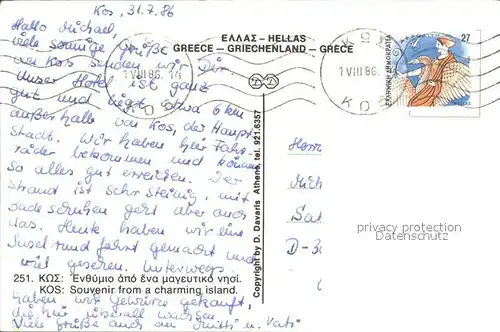 Kos, 31.7.86
Hallo Michael,
viele sonnige Grüße
aus Kos senden wir Dir.
Unser Hotel ist ganz
gut und liegt etwa 6 km
außerhalb von Kos, der Haupt-
stadt. Wir haben hier Fahr-
räder bekommen und können
so alles gut erreichen. Der
Strand ist sehr steinig, mit
Badeschuhen geht aber auch
das. Heute haben wir eine
Inselrundfahrt gemacht und
viel gesehen. Unterwegs
251. ΚΩΣ: Ἐνθύμιο ἀπό ἕνα μαγευτικό νησί.
KOS: Souvenir from a charming island.
haben wir Gewürze gekauft,
die hier überall wachsen.
Viele Grüße auch an Mutti u. Vati
ΕΛΛΑΣ - HELLAS
GREECE - GRIECHENLAND - GRECE
1 VIII 86. 14
ΚΩ
1 VIII 86.
ΚΩ
27
ΕΛΛΗΝΙΚΗ ΔΗΜΟΚΡΑΤΙΑ
HELLAS
Copyright by D. Davaris Athens, tel. 921.6357
Herrn
Mich
D-30
privacy protection
Datenschutz